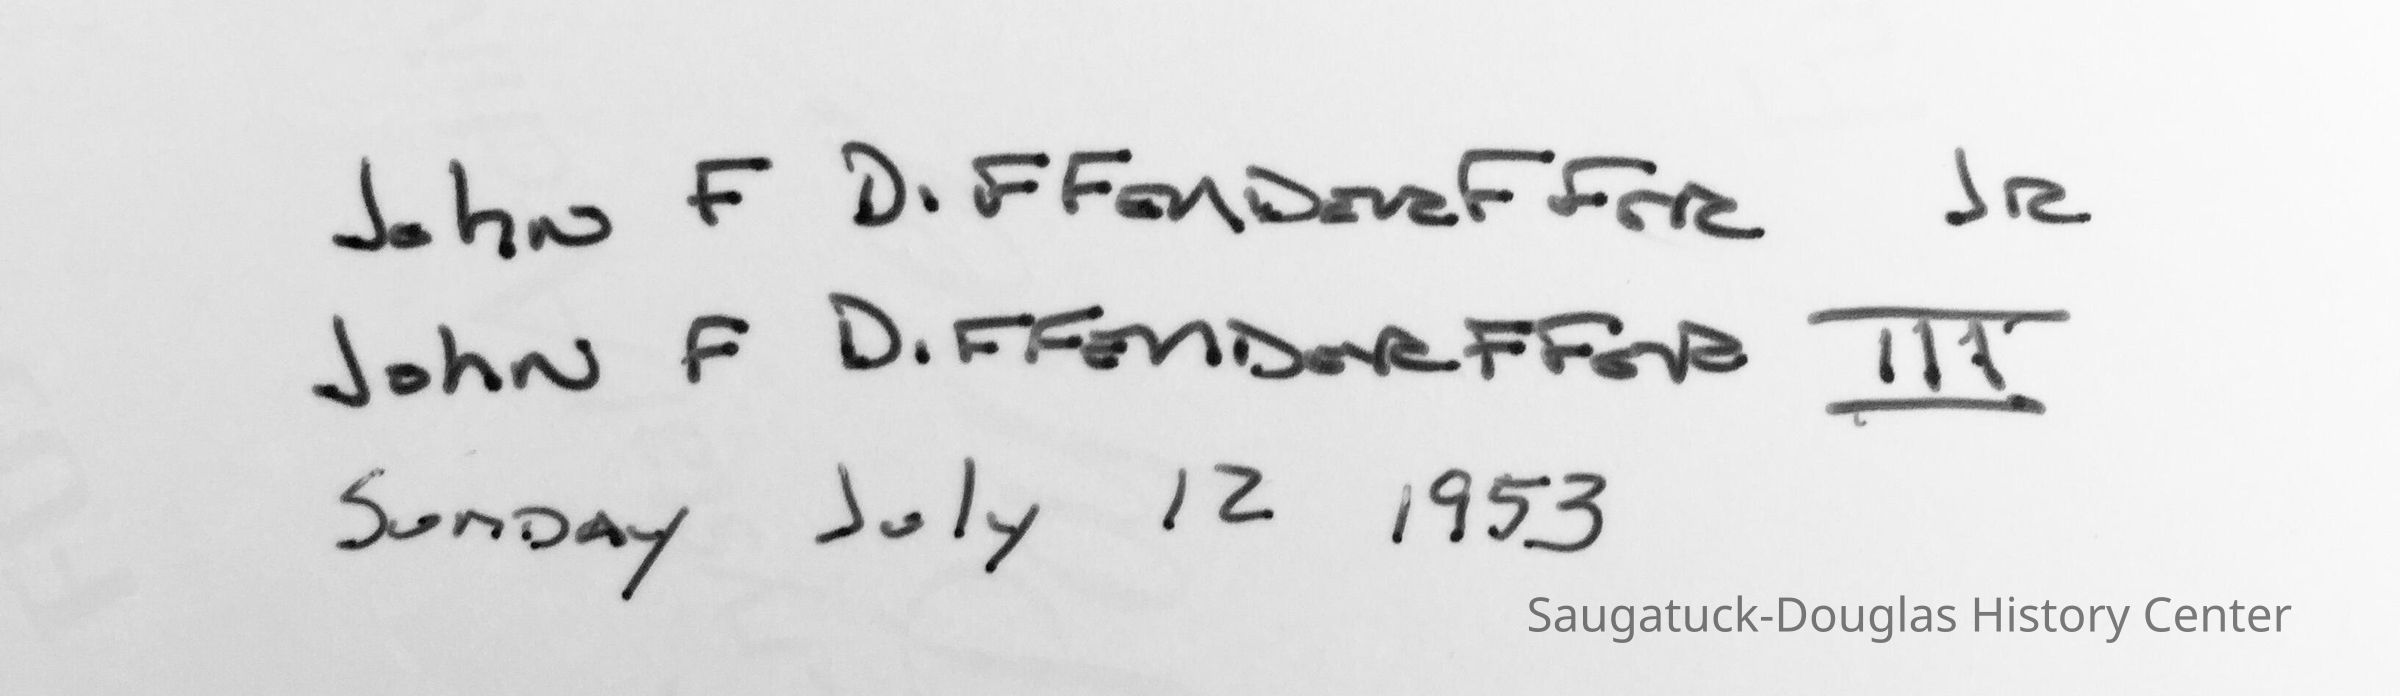 John F DiFFenDerFFer Jr
John F DiFFenDerFFer III
Sunday July 12 1953
Saugatuck-Douglas History Center